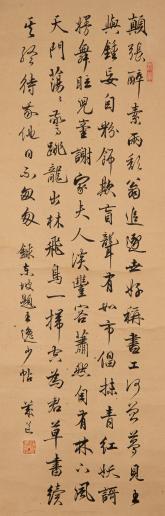 顛張醉素兩禿翁追逐世好稱書工何曾夢見王
與鍾妄自粉飾欺盲聾有如市倡抹青紅妖謌
嫚舞眩兒童謝家夫人淡豐容蕭然自有林下風
天門蕩〻驚跳龍出林飛鳥一掃空為君草書續
其終待我他日不匆匆 錄東坡題王逸少帖